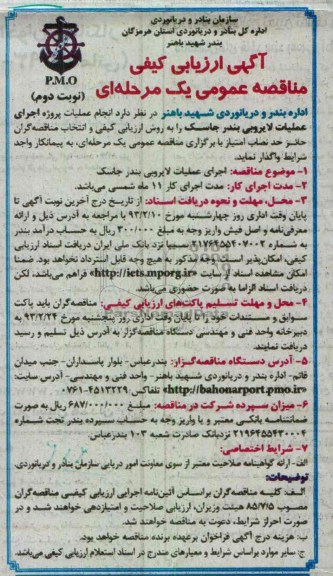 سازمان بنادر و دریانوردی
اداره کل بنادر و دریانوردی استان هرمزگان
بندر شهید باهنر
P.M.O
آگهی ارزیابی کیفی
مناقصه عمومی یک مرحله‌ای
(نوبت دوم)
اداره بندر و دریانوردی شهید باهنر در نظر دارد انجام عملیات پروژه اجرای
عملیات لایروبی بندر جاسک را به روش ارزیابی کیفی و انتخاب مناقصه‌گران
حائز حد نصاب امتیاز با برگزاری مناقصه عمومی یک مرحله‌ای، به پیمانکار واجد
شرایط واگذار نماید.
۱- موضوع مناقصه: اجرای عملیات لایروبی بندر جاسک
۲- مدت اجرای کار: مدت اجرای کار ۱۱ ماه شمسی می‌باشد.
۳- محل، مهلت و نحوه دریافت اسناد: از تاریخ درج آخرین نوبت آگهی تا
پایان وقت اداری روز چهارشنبه مورخ ۹۳/۲/۱۰ با مراجعه به آدرس ذیل و ارائه
معرفی‌نامه و اصل فیش واریز وجه به مبلغ ۳۰۰/۰۰۰ ریال به حساب درآمد بندر
به شماره ۲۱۷۶۴۵۵۴۰۷۰۰۲ سیبا نزد بانک ملی ایران دریافت اسناد ارزیابی
کیفی، امکان‌پذیر است. وجه مذکور به هیچ وجه قابل استرداد نخواهد بود. ضمنا
امکان مشاهده اسناد از سایت «http://iets.mporg.ir» فراهم می‌باشد، لکن
دریافت اسناد الزاما به صورت حضوری می‌باشد.
۴- محل و مهلت تسلیم پاکت‌های ارزیابی کیفی: مناقصه‌گران باید پاکت
سوابق و مستندات خود را تا پایان وقت اداری روز پنجشنبه مورخ ۹۳/۲/۲۴ به
دبیرخانه واحد فنی و مهندسی دستگاه مناقصه‌گزار به آدرس ذیل تسلیم و رسید
دریافت نمایند.
۵- آدرس دستگاه مناقصه‌گزار: بندرعباس- بلوار پاسداران- جنب میدان
قائم- اداره بندر و دریانوردی شهید باهنر- واحد فنی و مهندسی- آدرس سایت:
«http://bahonarport.pmo.ir» تلفاکس ۴۵۱۳۲۲۹-۰۷۶۱
۶- میزان سپرده شرکت در مناقصه: مبلغ ۶۸۷/۰۰۰/۰۰۰ ریال به صورت
ضمانتنامه بانکی معتبر و یا واریز وجه به حساب سپرده بندر تحت شماره
۲۱۹۶۴۵۵۴۳۰۰۰۴ نزد بانک صادرت شعبه ۱۰۳ بندرعباس.
۷- شرایط اختصاصی:
الف- ارائه گواهینامه صلاحیت معتبر از سوی معاونت امور دریایی سازمان بنادر و دریانوردی.
توضیحات:
الف: کلیه مناقصه‌گران براساس آئین‌نامه اجرایی ارزیابی کیفی مناقصه‌گران
مصوب ۸۵/۷/۵ هیئت وزیران، ارزیابی صلاحیت و امتیازدهی خواهند شد و در
صورت احراز شرایط، دعوت به مناقصه خواهند شد.
ب: هزینه درج آگهی فراخوان برعهده برنده مناقصه خواهد بود.
ج: سایر موارد براساس شرایط و معیارهای مندرج در اسناد استعلام ارزیابی کیفی می‌باشد.